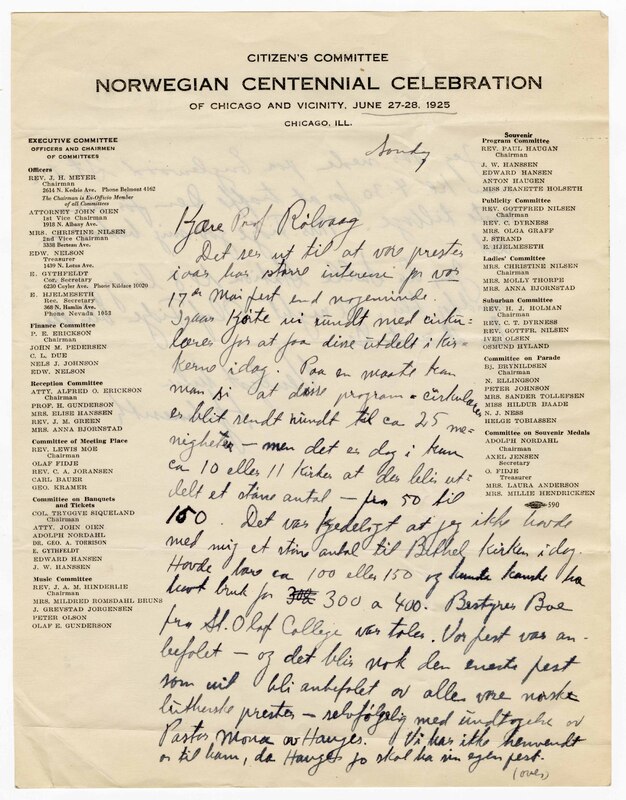 CITIZEN'S COMMITTEE
NORWEGIAN CENTENNIAL CELEBRATION
OF CHICAGO AND VICINITY, JUNE 27-28, 1925
CHICAGO, ILL.
EXECUTIVE COMMITTEE
OFFICERS AND CHAIRMEN
OF COMMITTEES
Officers
REV. J. H. MEYER
Chairman
2614 N. Kedzie Ave. Phone Belmont 4162
The Chairman is Ex-Officio Member
of all Committees
ATTORNEY JOHN OIEN
1st Vice Chairman
1918 N. Albany Ave.
MRS. CHRISTINE NILSEN
2nd Vice Chairman
3338 Berteau Ave.
EDW. NELSON
Treasurer
1439 N. Lotus Ave.
E. GYTHFELDT
Cor. Secretary
6230 Cuyler Ave. Phone Kildare 10020
E. HJELMESETH
Rec. Secretary
368 N. Hamlin Ave.
Phone Nevada 1053
Finance Committee
P. E. ERICKSON
Chairman
JOHN M. PEDERSEN
C. L. DUE
NELS J. JOHNSON
EDW. NELSON
Reception Committee
ATTY. ALFRED O. ERICKSON
Chairman
PROF. H. GUNDERSON
MRS. ELISE HANSSEN
REV. J. M. GREEN
MRS. ANNA BJORNSTAD
Committee of Meeting Place
REV. LEWIS MOE
Chairman
OLAF FIDJE
REV. C. A. JORANSEN
CARL BAUER
GEO. KRAMER
Committee on Banquets
and Tickets
COL. TRYGGVE SIQUELAND
Chairman
ATTY. JOHN OIEN
ADOLPH NORDAHL
DR. GEO. A. TORRISON
E. GYTHFELDT
EDWARD HANSEN
J. W. HANSSEN
Music Committee
REV. J. A. M. HINDERLIE
Chairman
MRS. MILDRED ROMSDAHL BRUNS
J. GREVSTAD JORGENSEN
PETER OLSON
OLAF E. GUNDERSON
Souvenir
Program Committee
REV. PAUL HAUGAN
Chairman
J. W. HANSSEN
EDWARD HANSEN
ANTON HAUGEN
MISS JEANETTE HOLSETH
Publicity Committee
REV. GOTTFRED NILSEN
Chairman
REV. C. DYRNESS
MRS. OLGA GRAFF
J. STRAND
E. HJELMESETH
Ladies' Committee
MRS. CHRISTINE NILSEN
Chairman
MRS. MOLLY THORPE
MRS. ANNA BJORNSTAD
Suburban Committee
REV. H. J. HOLMAN
Chairman
REV. C. T. DYRNESS
REV. GOTTFR. NILSEN
IVER OLSEN
OSMUND HYLAND
Committee on Parade
BJ. BRYNILDSEN
Chairman
N. ELLINGSON
PETER JOHNSON
MRS. SANDER TOLLEFSEN
MISS HILDUR BAADE
N. J. NESS
HELGE TOBIASSEN
Committee on Souvenir Medals
ADOLPH NORDAHL
Chairman
AXEL JENSEN
Secretary
O. FIDJE
Treasurer
MRS. LAURA ANDERSON
MRS. MILLIE HENDRICKSEN
590
Sondag
Kjære Prof Rölvaag
Det ser ut til at vore prester
iaar har större interesse for vor
17de Mai fest end nogensinde
Igaar kjörte vi rundt med cirku-
lærer for at faa disse utdelt i kir-
kerne idag. Paa en maate kan
man si at disse program-cirkulærer
er blit sendt rundt til ca 25 me-
nigheter – men det er dog i kun
ca 10 eller 11 kirker at der blir ut-
delt et större antal – fra 50 til
150. Det var kjedeligt at jeg ikke havde
med mig et större antal til Bethel Kirken idag.
Havde bare ca 100 eller 150 og kunde kanske ha
havt bruk for 300 a 400. Bestyrer Boe
fra St. Olaf College var taler. Vor fest var an-
befolet – og det blir nok den eneste fest
som vil bli anbefolet av alle vore norske
lutherske prester – selvfölgelig med undtagelse av
Pastor Monæ av Hauges. Vi har ikke henvendt
os til ham, da Hauges jo skal ha sin egen fest.
(over)